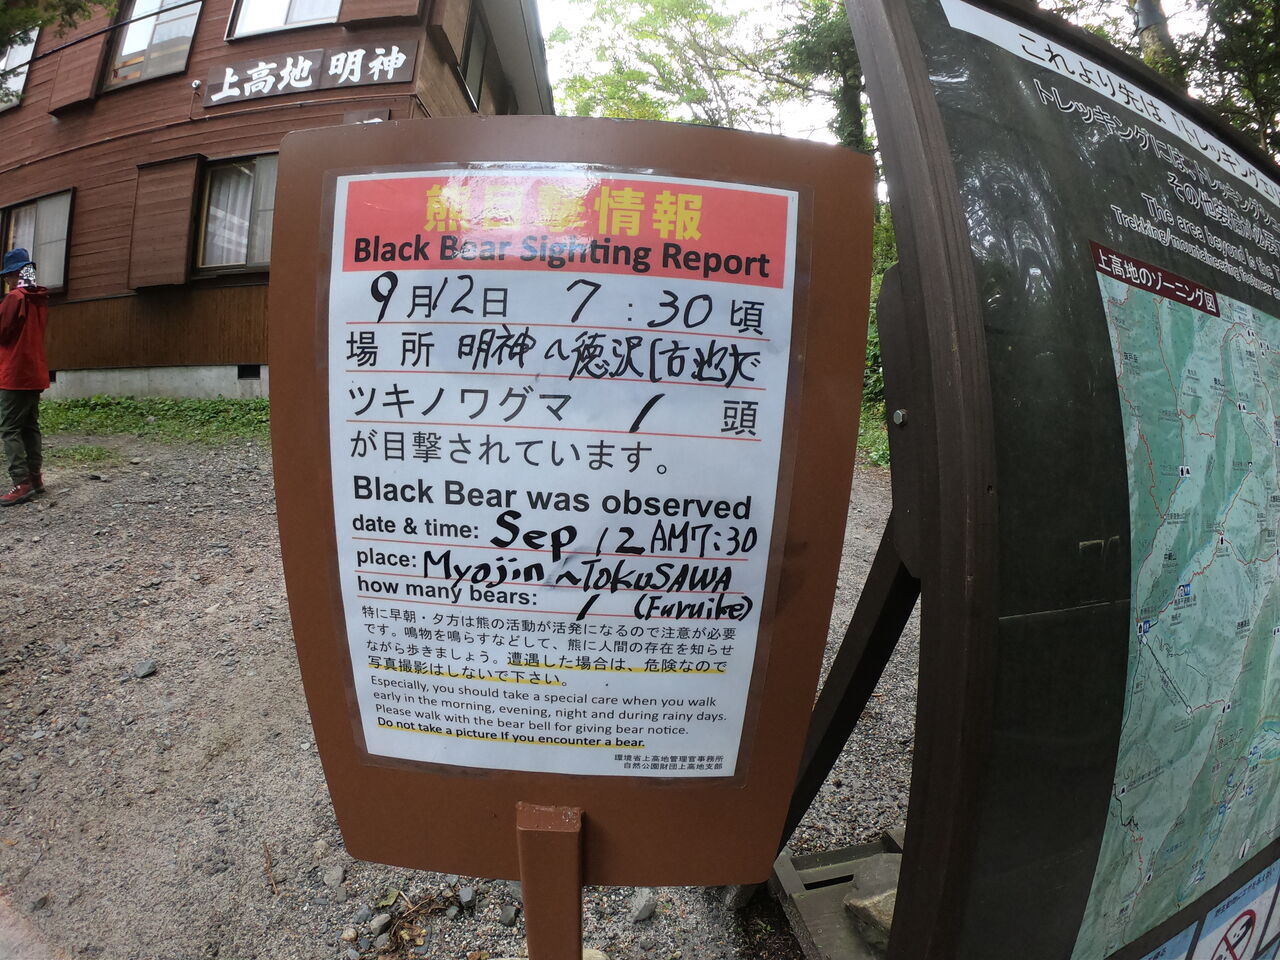 上高地 明神
熊目撃情報
Black Bear Sighting Report
9月12日 7:30頃
場所 明神〜徳沢(古池)で
ツキノワグマ 1 頭
が目撃されています。
Black Bear was observed
date & time: Sep 12 AM7:30
place: Myojin ~TOKUSAWA
how many bears: 1 (Furuike)
特に早朝・夕方は熊の活動が活発になるので注意が必要
です。鳴物を鳴らすなどして、熊に人間の存在を知らせ
ながら歩きましょう。遭遇した場合は、危険なので
写真撮影はしないで下さい。
Especially, you should take a special care when you walk
early in the morning, evening, night and during rainy days.
Please walk with the bear bell for giving bear notice.
Do not take a picture If you encounter a bear.
環境省上高地管理官事務所
自然公園財団上高地支部
これより先は「トレッキング
トレッキングには、トレッキング
その他装備が必要
The area beyond is the
Trekking/mountaineering
上高地のゾーニング図